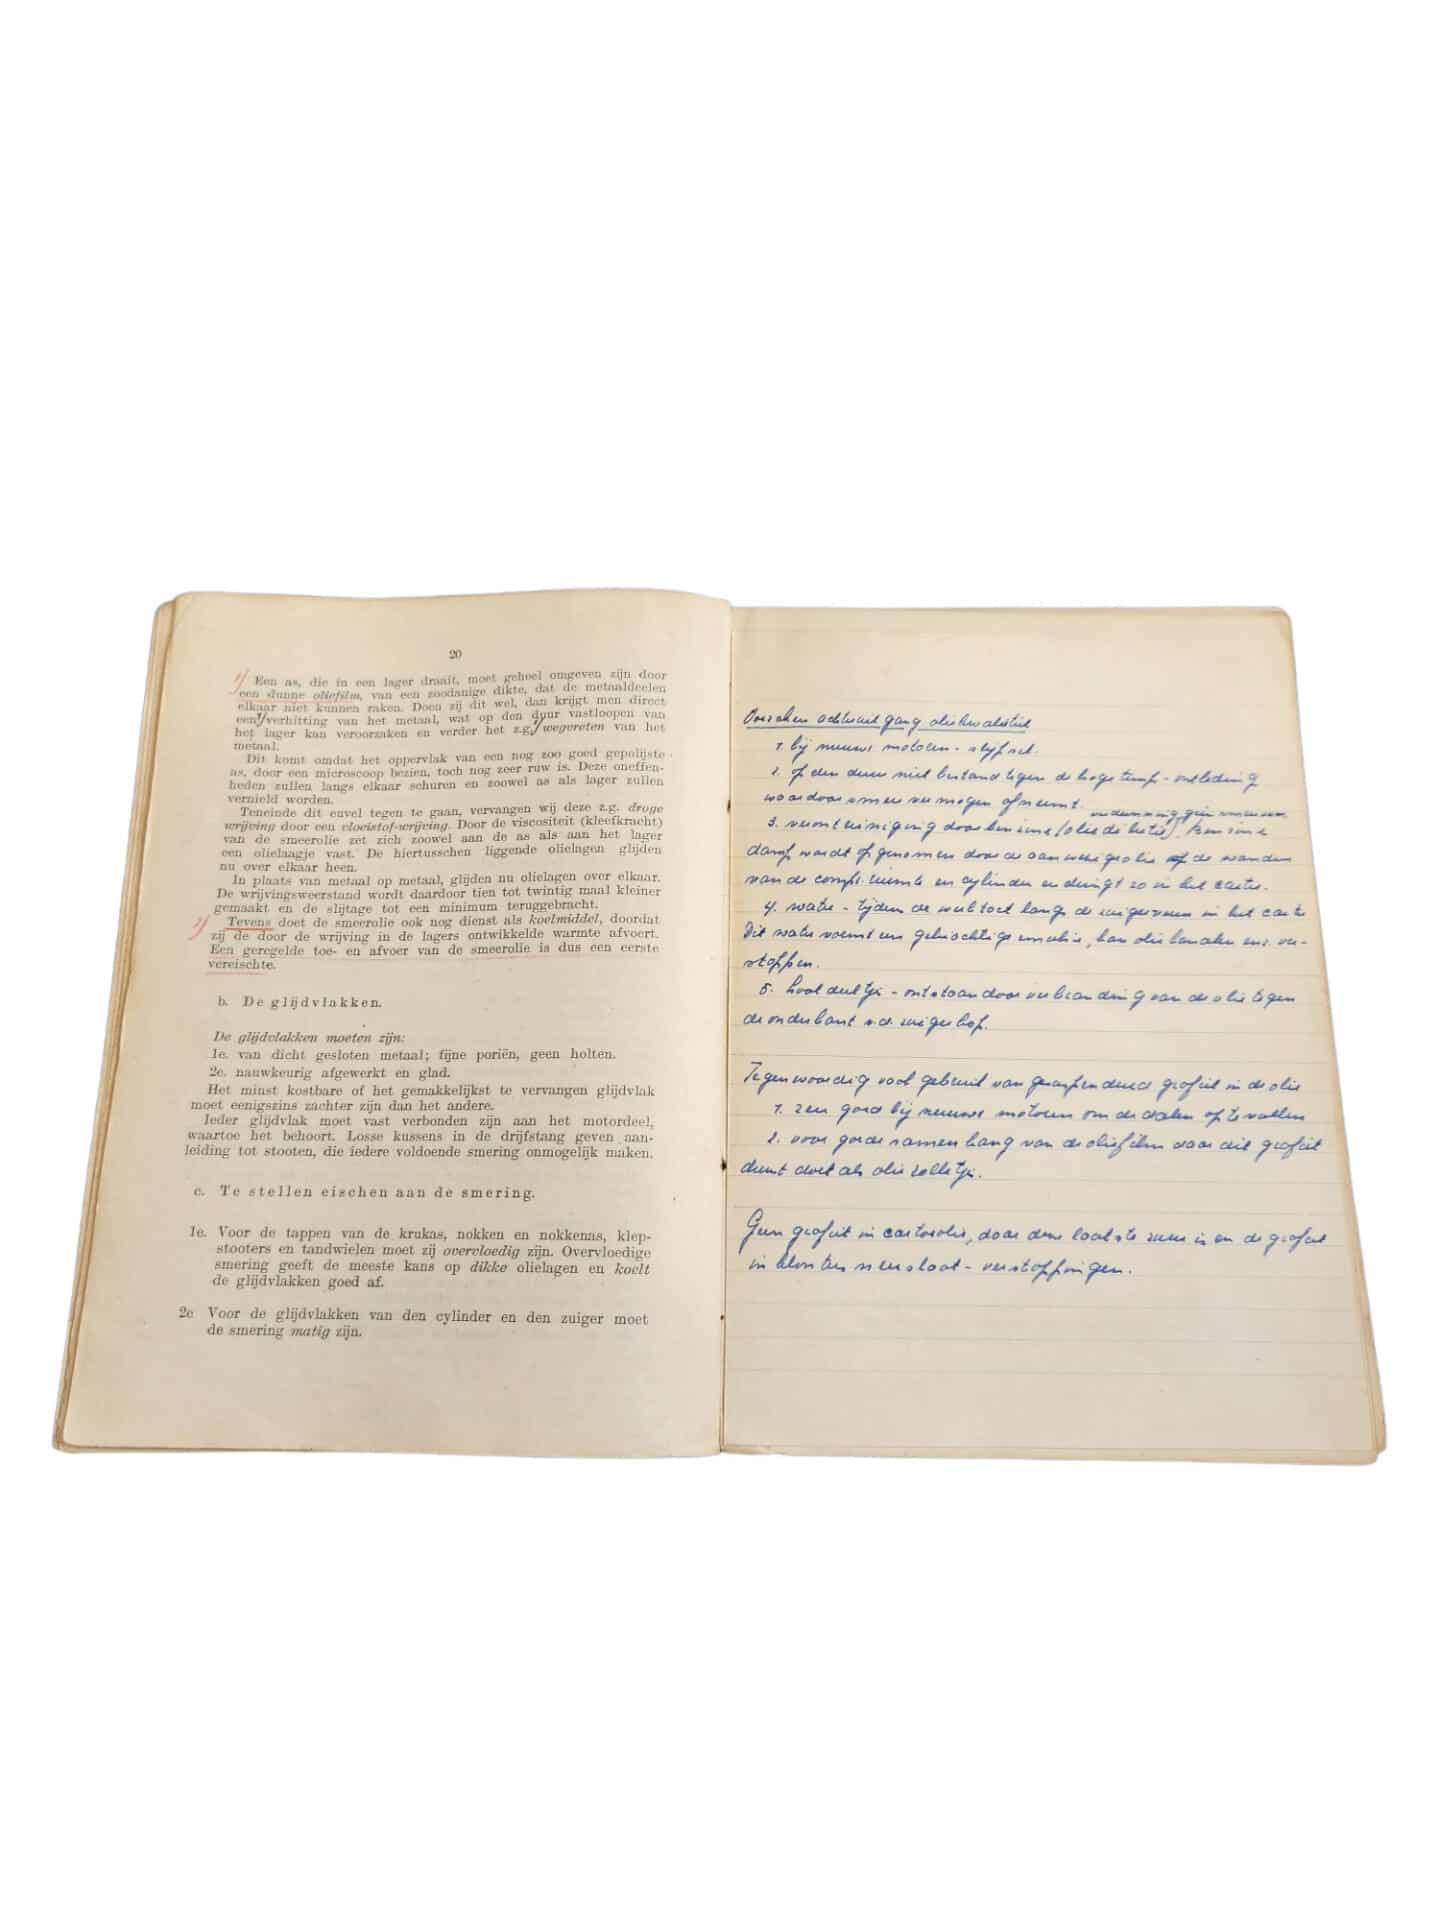 20
1) Een as, die in een lager draait, moet geheel omgeven zijn door
een dunne oliefilm, van een zoodanige dikte, dat de metaaldeelen
elkaar niet kunnen raken. Doen zij dit wel, dan krijgt men direct
een verhitting van het metaal, wat op den duur vastloopen van
het lager kan veroorzaken en verder het z.g. wegvreten van het
metaal.
Dit komt omdat het oppervlak van een nog zoo goed gepolijste
as, door een microscoop bezien, toch nog zeer ruw is. Deze oneffen-
heden zullen langs elkaar schuren en zoowel as als lager zullen
vernield worden.
Teneinde dit euvel tegen te gaan, vervangen wij deze z.g. droge
wrijving door een vloeistof-wrijving. Door de viscositeit (kleefkracht)
van de smeerolie zet zich zoowel aan de as als aan het lager
een olielaagje vast. De hiertusschen liggende olielagen glijden
nu over elkaar heen.
In plaats van metaal op metaal, glijden nu olielagen over elkaar.
De wrijvingsweerstand wordt daardoor tien tot twintig maal kleiner
gemaakt en de slijtage tot een minimum teruggebracht.
2) Tevens doet de smeerolie ook nog dienst als koelmiddel, doordat
zij de door de wrijving in de lagers ontwikkelde warmte afvoert.
Een geregelde toe- en afvoer van de smeerolie is dus een eerste
vereischte.
b. De glijdvlakken.
De glijdvlakken moeten zijn:
1e. van dicht gesloten metaal; fijne poriën, geen holten.
2e. nauwkeurig afgewerkt en glad.
Het minst kostbare of het gemakkelijkst te vervangen glijdvlak
moet eenigszins zachter zijn dan het andere.
Ieder glijdvlak moet vast verbonden zijn aan het motordeel,
waartoe het behoort. Losse kussens in de drijfstang geven aan-
leiding tot stooten, die iedere voldoende smering onmogelijk maken.
c. Te stellen eischen aan de smering.
1e. Voor de tappen van de krukas, nokken en nokkenas, klep-
stooters en tandwielen moet zij overvloedig zijn. Overvloedige
smering geeft de meeste kans op dikke olielagen en koelt
de glijdvlakken goed af.
2e. Voor de glijdvlakken van den cylinder en den zuiger moet
de smering matig zijn.
Oorzaken achteruitgang oliekwaliteit
1. bij nieuwe motoren - slijpsel.
2. op den duur niet bestand tegen de hoge temp - ontleding
waardoor smeer vermogen afneemt.
verdunning, geen smeren
3. verontreiniging door benzine (oliedilutie), benzine
damp wordt opgenomen door de aanwezige olie op de wanden
van de compr. ruimte en cylinder en dringt zo in het carter.
4. water - tijdens de werktoct langs de zuigerveren in het carter
Dit water vormt een geleiachtige emulsie, kan oliekanalen enz. ver-
stoppen.
5. kooldeeltjes - ontstaan door verbranding van de olie tegen
de onderkant v.d. zuigerkop.
Tegenwoordig veel gebruik van grafiet in de olie
1. zeer goed bij nieuwe motoren om de dalen op te vullen
2. voor goede samenhang van de oliefilm daar dit grafiet
dienst doet als olie rolletje.
Geen grafiet in castorolie, daar deze laatste zuur is en de grafiet
in klonters neerslaat - verstoppingen.